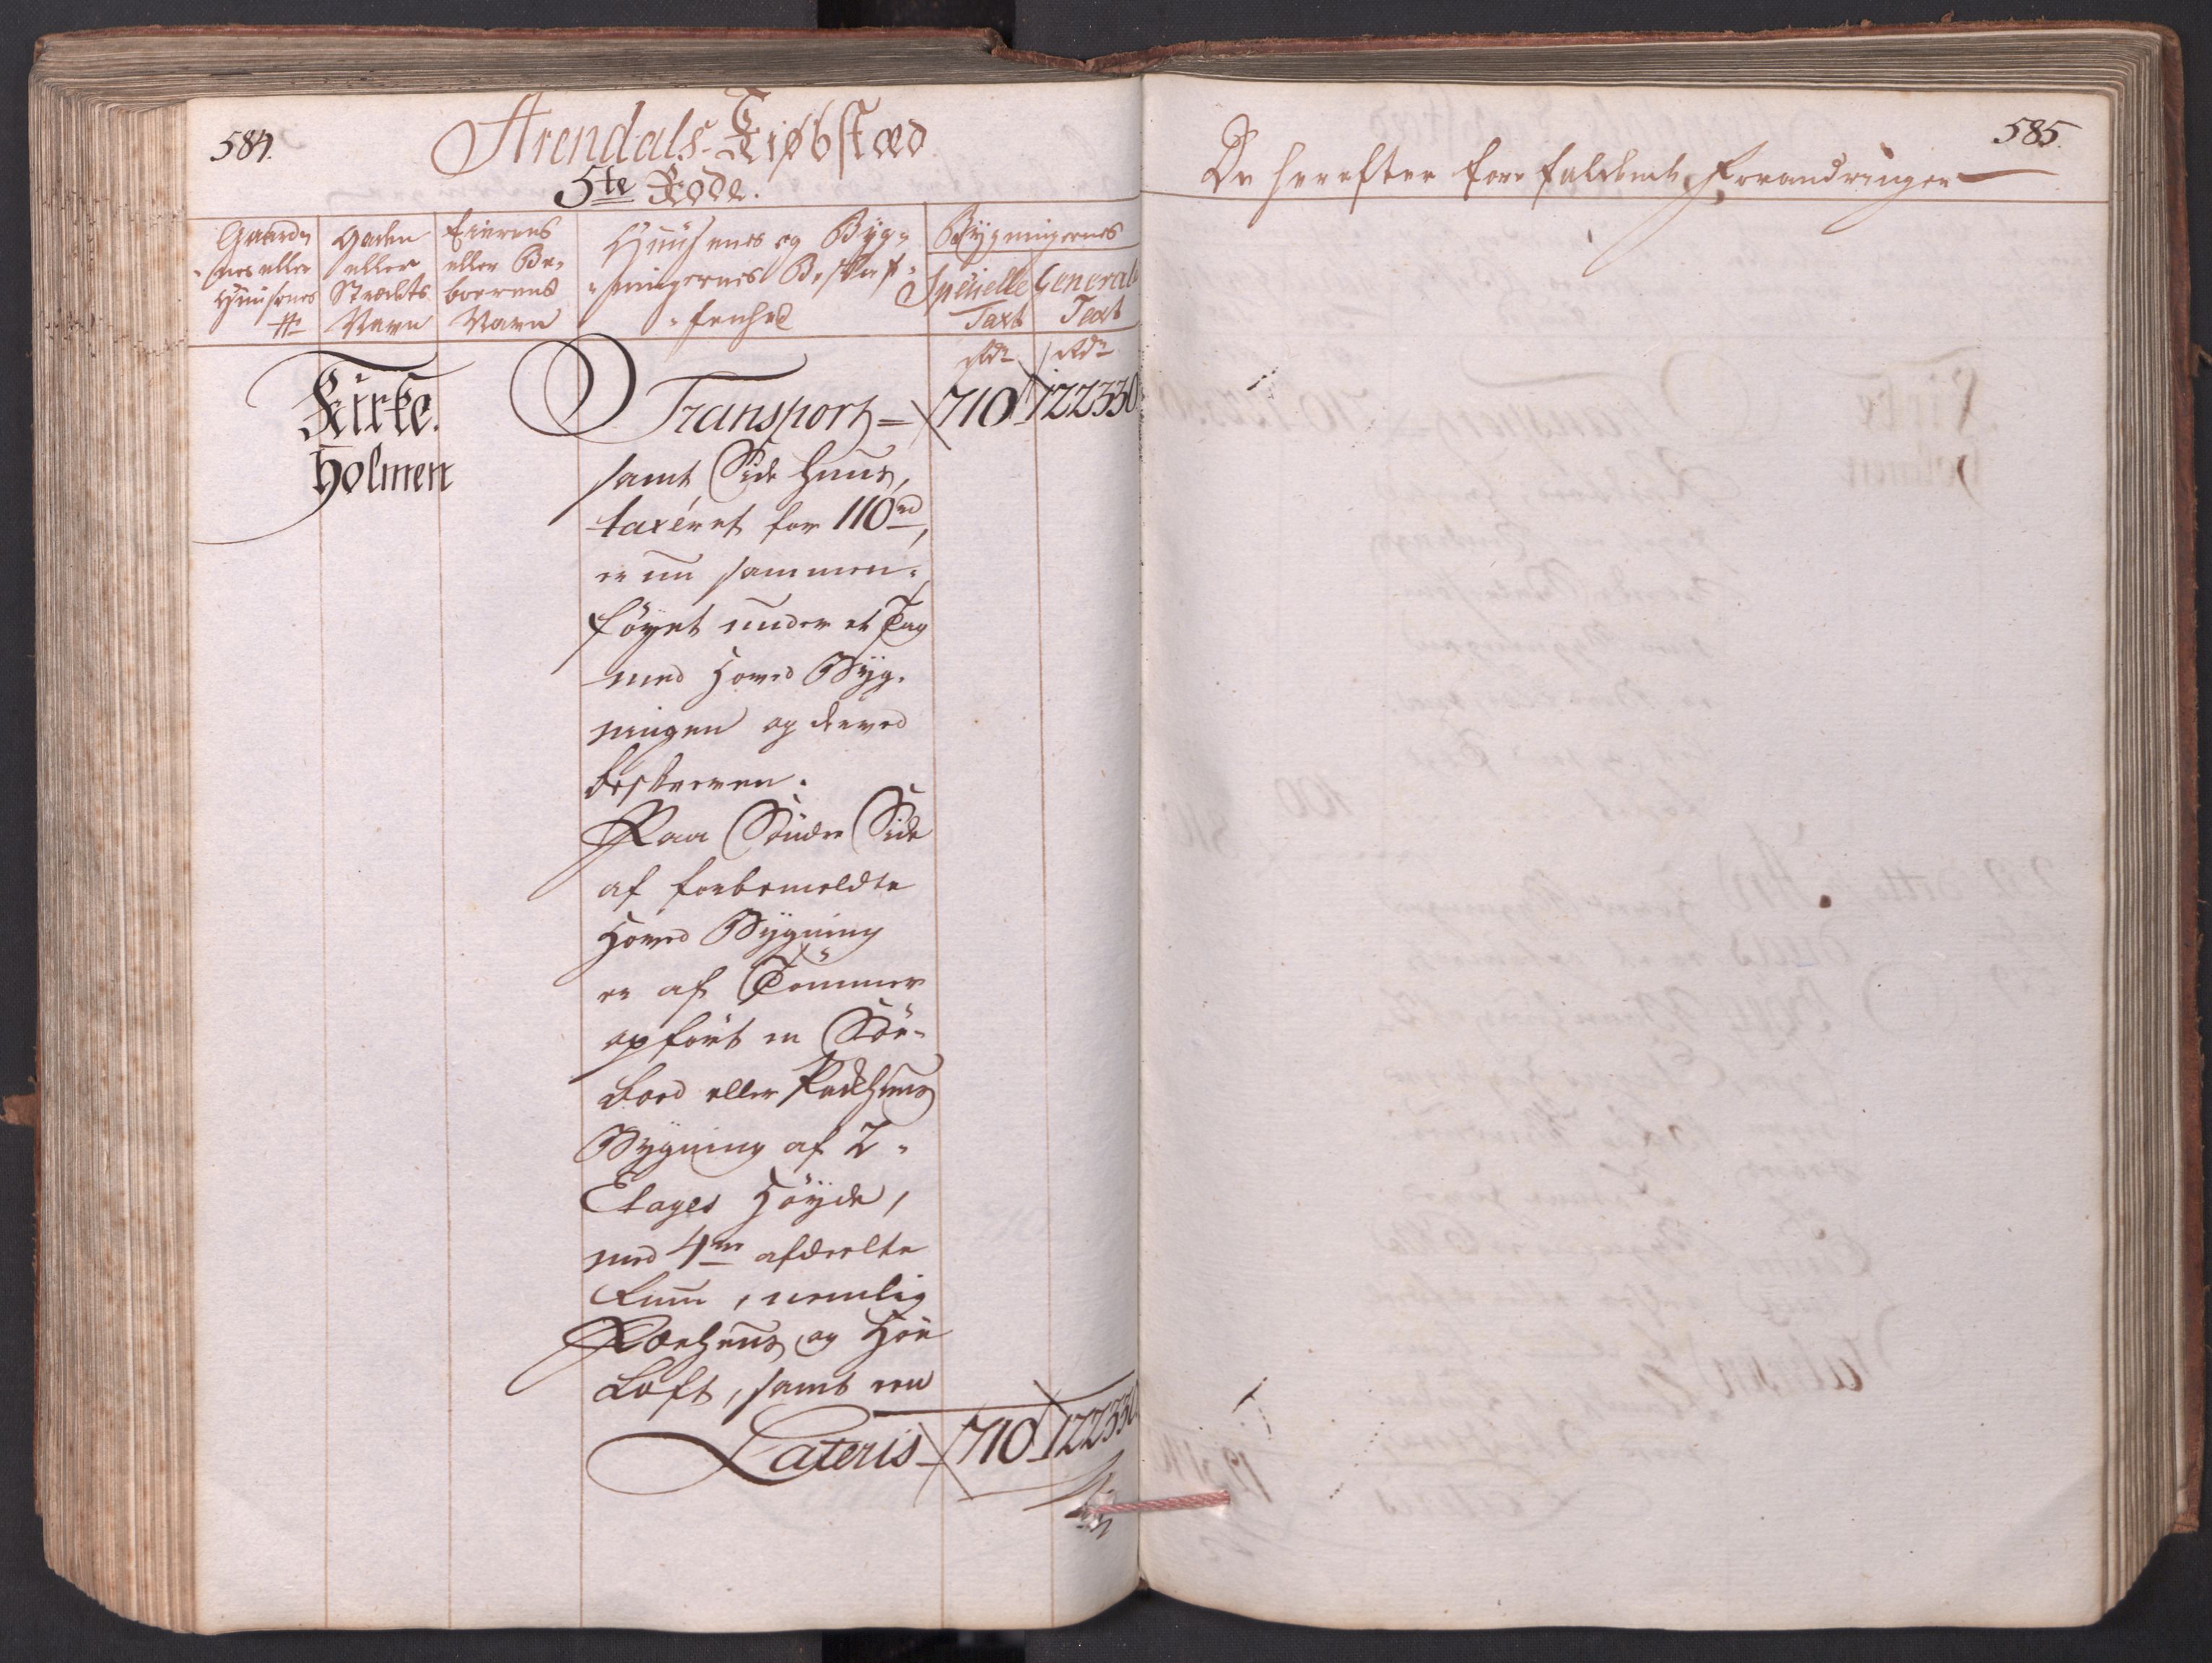 584.
Arendals Kiøbstæd
5te Rode.
Gaarde-
nes eller
Huusenes
№
Gaden
eller
Strædets
Navn
Eierens
eller Be-
boerens
Navn
Huusenes og Byg-
ningernes Beskaf-
fenhed
Bygningernes
Specielle
Taxt
General
Taxt
Rdr
Rdr
Kirke.
Holmen
Transport = 710 122330
samt Side Huus,
taxeret for 110 rd,
er nu sammen-
föyet under et Tag
med Hoved Byg-
ningen og derved
beskreven.
Paa Söndre Side
af forbemeldte
Hoved Bygning
er af Tömmer
opfört en Söe-
Boed eller Pakhuus
Bygning af 2
Etages Höyde,
med 4re afdeelte
Rum, nemlig
og Höe
Loft, samt een
Lateris 710 122330
585.
De herefter forefaldende Forandringer